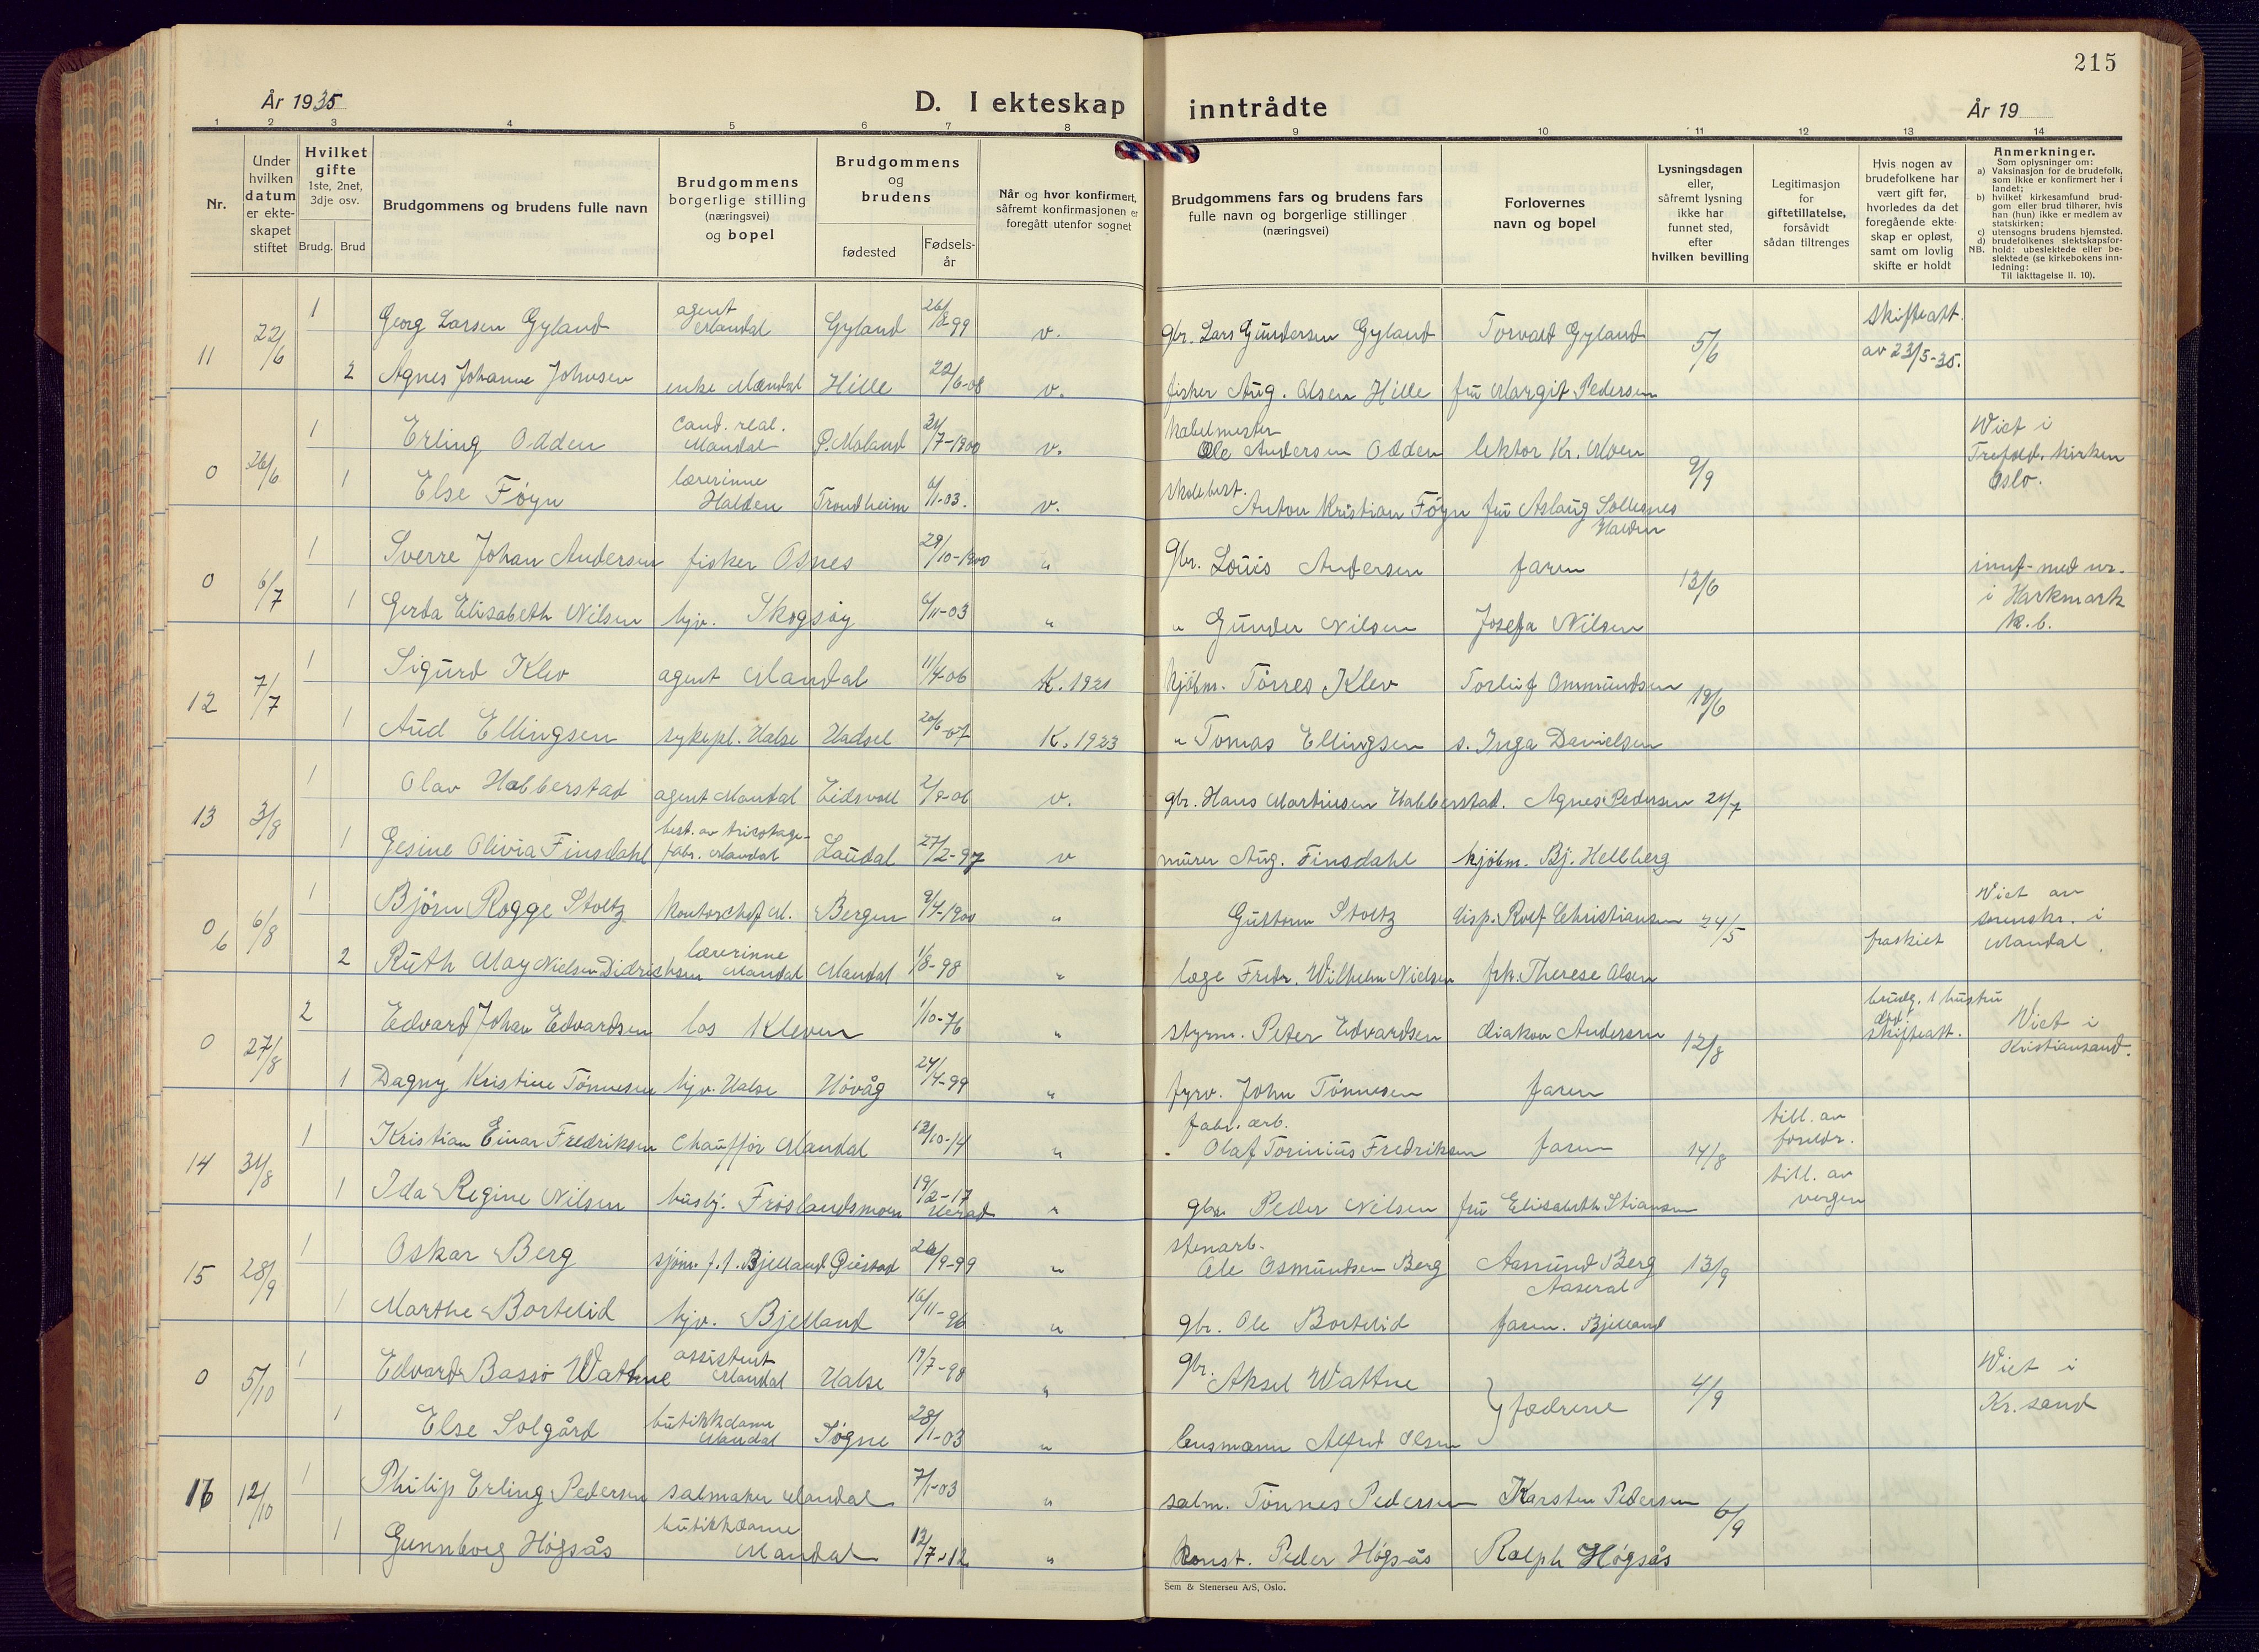 215
År 1935
D. I ekteskap inntrådte
År 19
1 2 3 4 5 6 7 8 9 10 11 12 13 14
Nr.
Under hvilken datum er ekteskapet stiftet
Hvilket gifte 1ste, 2net, 3dje osv.
Brudg. Brud
Brudgommens og brudens fulle navn
Brudgommens borgerlige stilling (næringsvei) og bopel
Brudgommens og brudens
fødested
Fødsels-år
Når og hvor konfirmert, såfremt konfirmasjonen er foregått utenfor sognet
Brudgommens fars og brudens fars fulle navn og borgerlige stillinger (næringsvei)
Forlovernes navn og bopel
Lysningsdagen eller, såfremt lysning ikke har funnet sted, efter hvilken bevilling
Legitimasjon for giftetillatelse, forsåvidt sådan tiltrenges
Hvis nogen av brudefolkene har vært gift før, hvorledes da det foregående ekteskap er opløst, samt om lovlig skifte er holdt
Anmerkninger.
Som oplysninger om:
a) Vaksinasjon for de brudefolk, som ikke er konfirmert her i landet;
b) hvilket kirkesamfund brudgom eller brud tilhører, hvis han (hun) ikke er medlem av statskirken;
c) utensogns brudens hjemsted.
d) brudefolkenes slektskapsforhold: ubeslektede eller beslektede (se kirkebokens innledning:
NB. Til iakttagelse II. 10).
11 22/6 1 Georg Larsen Gyland agent Mandal Gyland 26/8 99 v. gbr. Lars Gundersen Gyland Torvald Gyland 5/6 Skifteatt. av 23/5-35.
2 Agnes Johanne Johnsen enke Mandal Hille 22/6-08 v. fisker Aug. Olsen Hille fru Margit Pedersen
0 26/6 1 Erling Odden cand. real. Mandal P. Moland 24/7-1900 v. Kabelmester Ole Andersen Odden lektor Kr. Moen 9/9 Viet i Trefold. kirken Oslo.
1 Else Föyn lærerinne Halden Trondheim 6/11-03. v. Skolebest. Anton Kristian Föyn fru Aslaug Sollesnes Halden
0 6/7 1 Sverre Johan Andersen fisker Osnes 29/10-1900 " Gbr. Louis Andersen faren 13/6 innf. med nr. i Harkmark k.b.
1 Gerda Elisabeth Nilsen hjv. Skogsöy 6/11-03 " " Gunder Nilsen Josefa Nilsen
12 7/7 1 Sigurd Klev agent Mandal 11/4-06 K. 1921 kjöbm. Törres Klev Torleif Ommundsen 19/6
1 Aud Ellingsen sykepl. Halse Hadsel 20/6-07 K. 1923 " Tomas Ellingsen s. Inga Danielsen
13 3/8 1 Olav Habberstad agent Mandal Eidsvoll 2/8-06 v. gbr. Hans Martinsen Habberstad. Agnes Pedersen 24/7
1 Gesine Olivia Finsdahl best. av tricotage-fabr. Mandal Laudal 27/2-97 v murer Aug. Finsdahl kjöbm. Bj. Hellberg
0 6 6/8 1 Björn Rogge Stoltz kontorchef M. Bergen 9/4-1900 " Guttorm Stoltz disp. Rolf Christiansen 24/5 fraskilt Viet av sorenskr. i Mandal.
2 Ruth May Nielsen Didrichsen lærerinne Mandal Mandal 1/8-98 " læge Fredr. Wilhelm Nielsen frk. Therese Olsen
0 27/8 2 Edvard Johan Edvardsen los Kleven 1/10-76 " styrm. Peter Edvardsen diakon Andersen 12/8 brudg. 1 hustru död skifteatt. Viet i Kristiansand.
1 Dagny Kristine Tönnesen hjv. Halse Hövåg 24/4-99 " fyrv. John Tönnesen faren
14 31/8 1 Kristian Einar Fredriksen Chaufför Mandal 12/10-14 " fabr. arb. Olaf Torinius Fredriksen faren 14/8 till. av foreldr.
1 Ida Regine Nilsen husbj. Fröslandsmoen 19/2-17 Herad " gbr. Peder Nilsen fru Elisabeth Stiansen till. av vergen
15 28/9 1 Oskar Berg sjöm. f.t. Bjelland Grestad 26/9-99 " stenarb. Ole Osmundsen Berg Aasmund Berg Aaseral 13/9
1 Marthe Bortelid hjv. Bjelland 16/11-96 " gbr. Ole Bortelid faren. Bjelland
0 5/10 1 Edvard Bassö Wattne assistent Mandal Halse 19/7-98 " Gbr. Aksel Wattne } fedrene 4/9 Viet i Kr.sand
1 Else Solgård butikkdame Mandal Søgne 28/1-03 " lensmann Alfred Olsen
16 12/10 1 Philip Erling Pedersen salmaker Mandal 7/1-03 " salm. Tönnes Pedersen Karsten Pedersen 6/9
1 Gunnborg Högsås butikkdame Mandal 12/7-12 " konst. Peder Högsås Ralph Högsås
Sem & Stenersen A/S, Oslo.